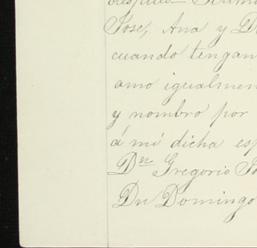 José, Ana y D
cuando tengan
amo igualmen
y nombro por
á mi dicha esp
Dn Gregorio
Dn Domingo